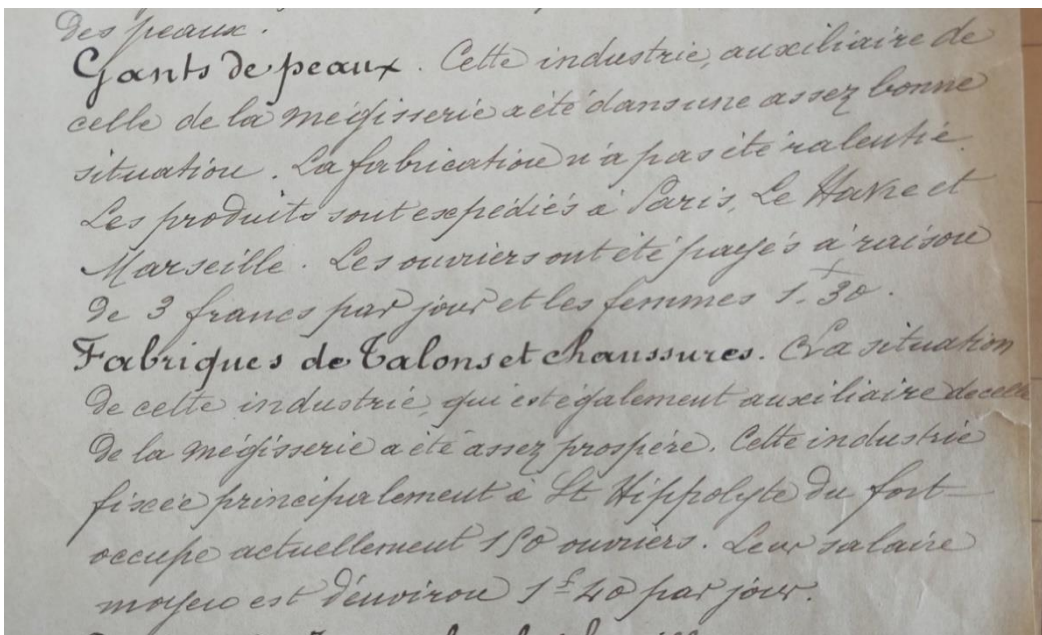 des peaux.
Gants de peaux. Cette industrie, auxiliaire de
celle de la mégisserie a été dans une assez bonne
situation. La fabrication n'a pas été ralentie.
Les produits sont expédiés à Paris, Le Havre et
Marseille. Les ouvriers ont été payés à raison
de 3 francs par jour et les femmes 1f 30.
Fabriques de Talons et chaussures. La situation
de cette industrie, qui est également auxiliaire de celle
de la mégisserie a été assez prospère. Cette industrie
fixée principalement à St Hippolyte du fort
occupe actuellement 150 ouvriers. Leur salaire
moyen est d'environ 1f 40 par jour.